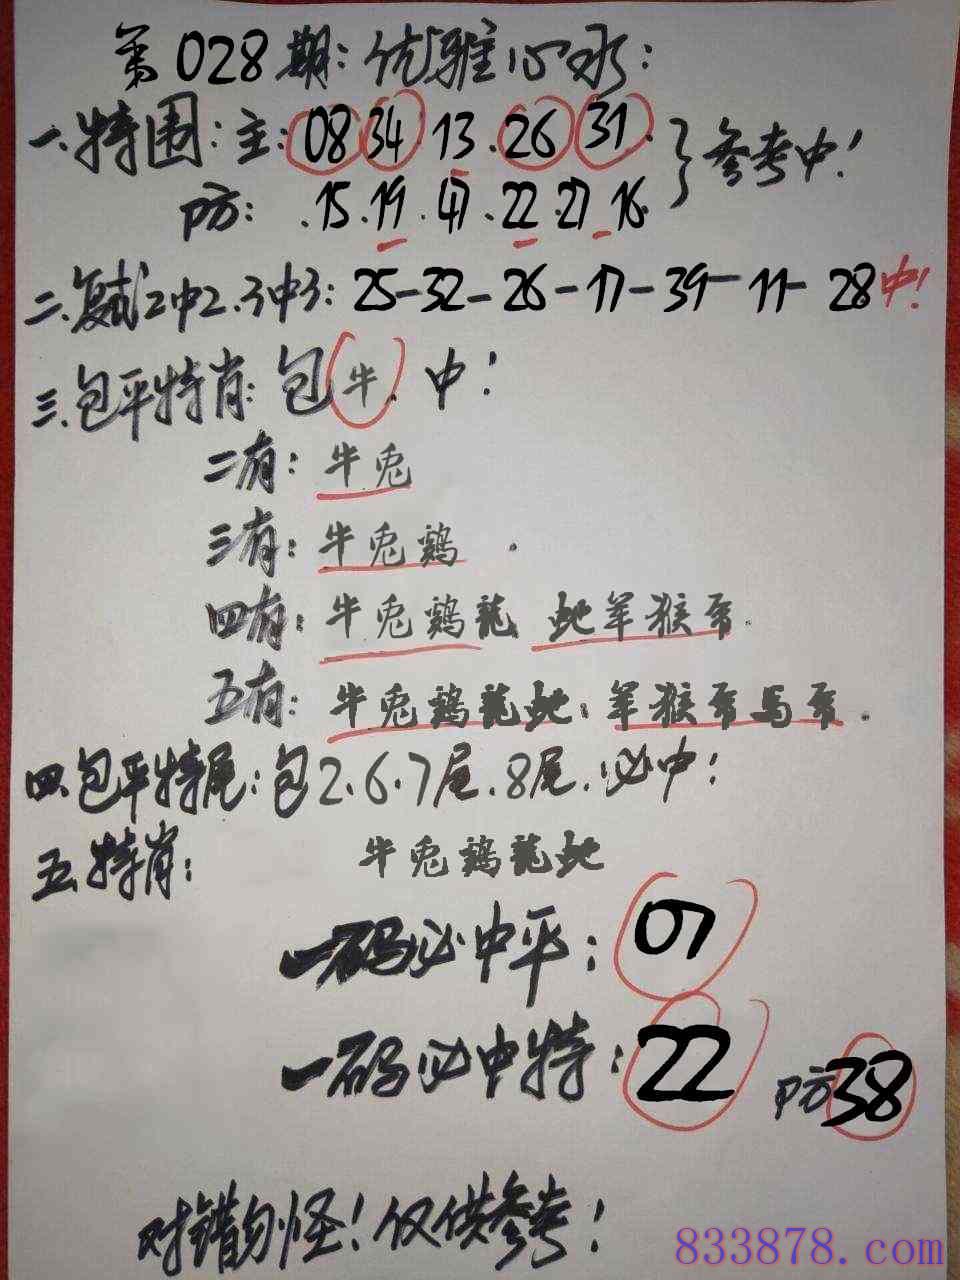 第028期:优雅心水:
一.特围:主:08 34.13.26 31. }参考中!
防:.15.19.47.22.27.16.
二.复式2中2.3中3:25-32-26-17-39-11-28中!
三.包平特肖:包牛.中!
二有:牛兔
三有:牛兔鷄.
四有:牛兔鷄龍 蛇羊猴
五有:牛兔鷄龍蛇.羊猴 馬
四.包平特尾:包2.6.7尾.8尾.必中!
五.特肖: 牛兔鷄龍蛇
一码必中平:07
一码必中特:22 防38
对错勿怪!仅供参考!
833878.com